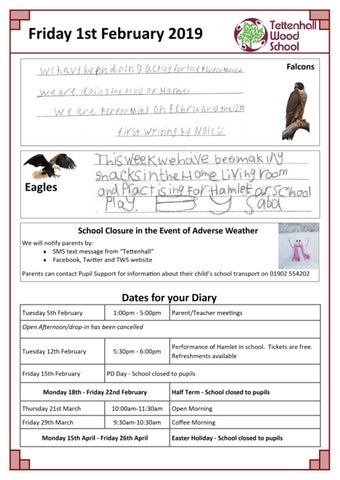 Friday 1st February 2019
Tettenhall
Wood
School
we have been doing acting for the performance
Falcons
we are doing the play of Hamlet
we are performing on february the 12th
first writing by
This week we have been making
snacks in the Home Living room
and Practising For Hamlet our school
Play. By
Eagles
School Closure in the Event of Adverse Weather
We will notify parents by:
• SMS text message from "Tettenhall"
• Facebook, Twitter and TWS website
Parents can contact Pupil Support for information about their child's school transport on 01902 554202
Dates for your Diary
Tuesday 5th February 1:00pm - 5:00pm Parent/Teacher meetings
Open Afternoon/drop-in has been cancelled
Tuesday 12th February 5:30pm - 6:00pm Performance of Hamlet in school. Tickets are free.
Refreshments available
Friday 15th February PD Day - School closed to pupils
Monday 18th - Friday 22nd February Half Term - School closed to pupils
Thursday 21st March 10:00am-11:30am Open Morning
Friday 29th March 9:30am-10:30am Coffee Morning
Monday 15th April - Friday 26th April Easter Holiday - School closed to pupils